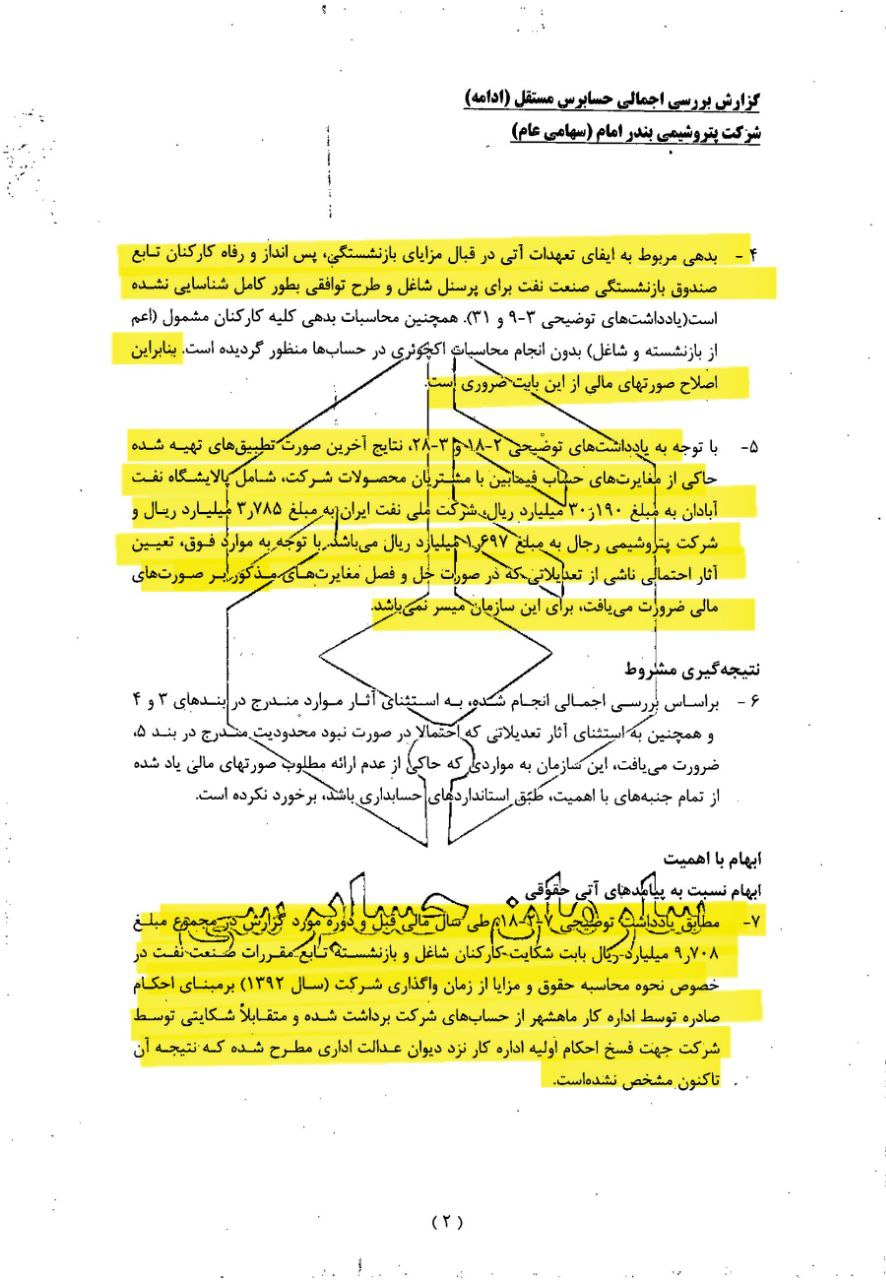 گزارش بررسی اجمالی حسابرس مستقل (ادامه)
شرکت پتروشیمی بندر امام (سهامی عام)
۴ - بدهی مربوط به ایفای تعهدات آتی در قبال مزایای بازنشستگی، پس انداز و رفاه کارکنان تابع
صندوق بازنشستگی صنعت نفت برای پرسنل شاغل و طرح توافقی بطور کامل شناسایی نشده
است(یادداشت‌های توضیحی ۳-۹ و ۳۱). همچنین محاسبات بدهی کلیه کارکنان مشمول (اعم
از بازنشسته و شاغل) بدون انجام محاسبات اکچوئری در حساب‌ها منظور گردیده است. بنابراین
اصلاح صورتهای مالی از این بابت ضروری است.
۵- با توجه به یادداشت‌های توضیحی ۲-۱۸ و ۳-۲۸، نتایج آخرین صورت تطبیق‌های تهیه شده
حاکی از مغایرت‌های حساب فیمابین با مشتریان محصولات شرکت، شامل پالایشگاه نفت
آبادان به مبلغ ۳۰٫۱۹۰ میلیارد ریال، شرکت ملی نفت ایران به مبلغ ۳٫۷۸۵ میلیارد ریال و
شرکت پتروشیمی رجال به مبلغ ۱٫۶۹۷ میلیارد ریال می‌باشد. با توجه به موارد فوق، تعیین
آثار احتمالی ناشی از تعدیلاتی که در صورت حل و فصل مغایرت‌های مذکور بر صورت‌های
مالی ضرورت می‌یافت، برای این سازمان میسر نمی‌باشد.
نتیجه‌گیری مشروط
۶ - براساس بررسی اجمالی انجام شده، به استثنای آثار موارد مندرج در بندهای ۳ و ۴
و همچنین به استثنای آثار تعدیلاتی که احتمالا در صورت نبود محدودیت مندرج در بند ۵،
ضرورت می‌یافت، این سازمان به مواردی که حاکی از عدم ارائه مطلوب صورتهای مالی یاد شده
از تمام جنبه‌های با اهمیت، طبق استانداردهای حسابداری باشد، برخورد نکرده است.
ابهام با اهمیت
ابهام نسبت به پیامدهای آتی حقوقی
سازمان حسابرسی
۷- مطابق یادداشت توضیحی ۷-۲-۱۸، طی سال مالی قبل و دوره مورد گزارش در مجموع مبلغ
۹٫۷۰۸ میلیارد ریال بابت شکایت کارکنان شاغل و بازنشسته تابع مقررات صنعت نفت در
خصوص نحوه محاسبه حقوق و مزایا از زمان واگذاری شرکت (سال ۱۳۹۲) برمبنای احکام
صادره توسط اداره کار ماهشهر از حساب‌های شرکت برداشت شده و متقابلاً شکایتی توسط
شرکت جهت فسخ احکام اولیه اداره کار نزد دیوان عدالت اداری مطرح شده که نتیجه آن
تاکنون مشخص نشده‌است.
(۲)